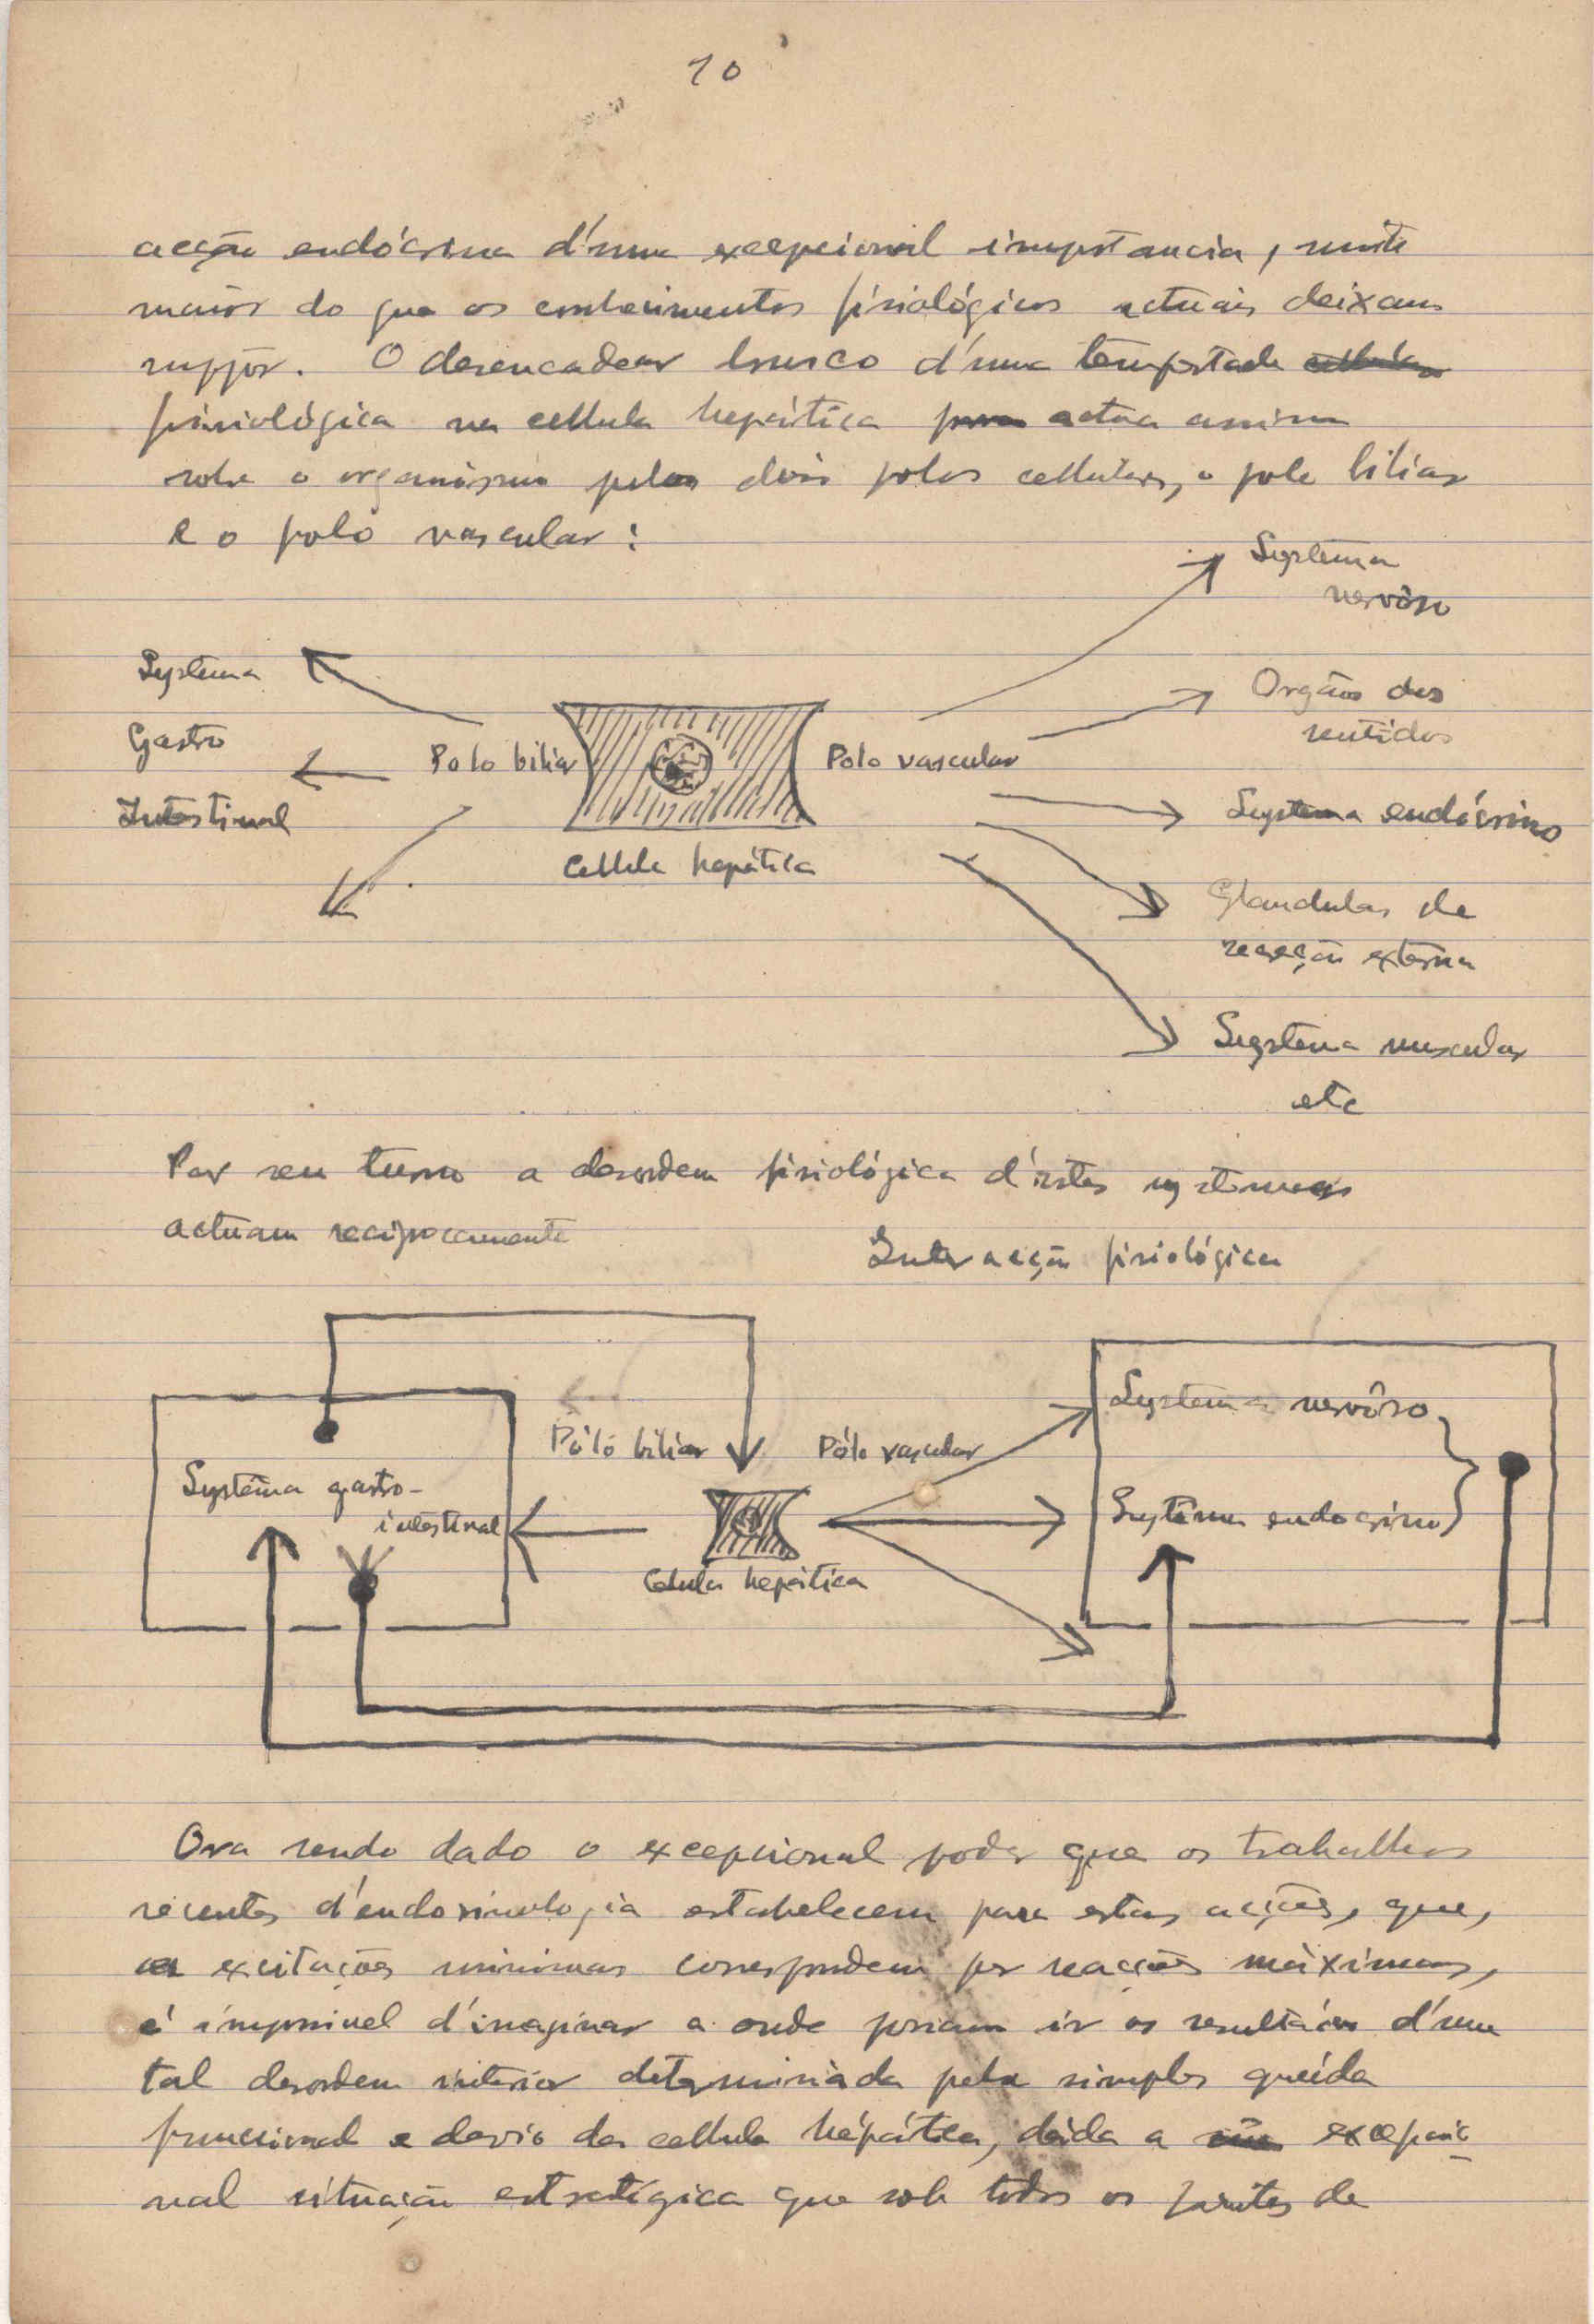 10
acção endócrina d'uma excepcional importancia, muito
maior do que os conhecimentos fisiológicos actuais deixam
suppôr. O desencadear brusco d'uma tempestade
fisiológica na cellula hepática actua assim
sobre o organismo pelos dois polos cellulares, o polo biliar
e o polo vascular:
Systema
nervôso
Systema
Gastro
Intestinal
Polo biliar
Polo vascular
Orgãos dos
sentidos
Systema endócrino
Cellula hepática
Glandulas de
secreção externa
Systema muscular
etc
Por seu turno a desordem fisiológica d'estes systemas
actuam reciprocamente
Inter acção fisiológica
Systema nervôso
Pólo biliar
Pólo vascular
Systema gastro-
intestinal
Systema endocrino
Celula hepática
Ora sendo dado o excepcional poder que os trabalhos
recentes d'endocrinologia estabelecem para estas acções, que,
a excitações minimas correspondem por reacções máximas,
é impossivel d'imaginar a onde possam ir os resultados d'uma
tal desordem interior determinada pela simples queda
funccional e desvio da cellula hépática, dada a excepcio
nal situação estratégica que sob todos os pontos de